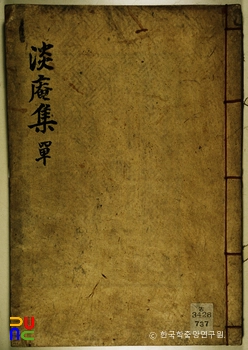 淡庵集
單
3428
737
© 한국학중앙연구원